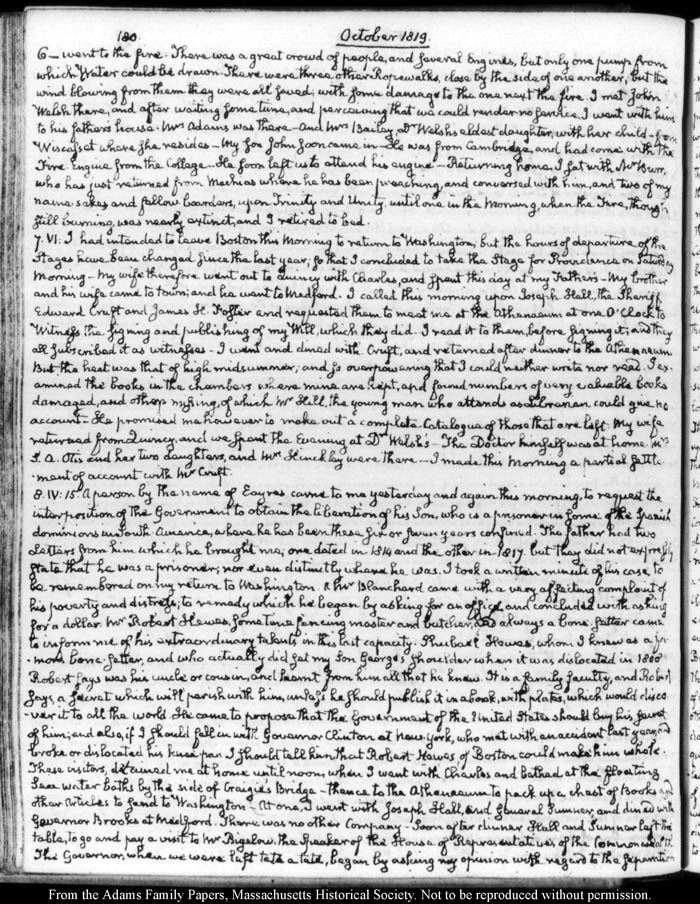 180.
October 1819.
6— went to the fire. There was a great crowd of people, and several Engines, but only one pump from
which Water could be drawn. There were three other Ropewalks, close by the side of one another, but the
wind blowing from them they were all saved, with some damage to the one next the fire. I met John
Welsh there, and after waiting some time, and perceiving that we could render no service, I went with him
to his father's house. Mrs. Adams was there— And Mrs. Bailey, Dr. Welsh's eldest daughter, with her child— from
Wiscasset where she resides— My Son John soon came in— He was from Cambridge, and had come with the
Fire Engine from the College— He soon left us to attend his engine— Returning home, I sat with Mr. Burr,
who has just returned from Machias where he has been preaching, and conversed with him, and two of my
name-sakes and fellow boarders, upon Trinity and Unity, until one in the Morning, when the Fire, though
still burning, was nearly extinct, and I retired to bed.
7. VI: I had intended to leave Boston this Morning to return to Washington, but the hours of departure of the
Stages have been changed since the last year; so that I concluded to take the Stage for Providence on Saturday
Morning— My wife therefore went out to Quincy with Charles, and spent this day at my Father's— My brother
and his wife came to town; and he went to Medford. I called this morning upon Joseph Hall, the Sheriff,
Edward Cruft and James H. Foster and requested them to meet me at the Athenaeum at one O'Clock to
Witness the signing and publishing of my Will, which they did. I read it to them, before signing it; and they
all subscribed it as witnesses— I went and dined with Cruft, and returned after dinner to the Athenaeum.
But the heat was that of high midsummer, and so overpowering that I could neither write nor read. I ex-
amined the books in the chambers where mine are kept, and found numbers of very valuable books
damaged, and others missing, of which Mr. Hill, the young man who attends as Librarian could give no
account— He promised me however to make out a complete Catalogue of those that are left. My wife
returned from Quincy, and we spent the Evening at Dr. Welsh's— The Doctor himself was at home. Mrs.
S. A. Otis and her two daughters, and Mr. Hinckley were there— I made this Morning a partial settle-
ment of account with Mr. Cruft.
8. IV: 15. A person by the name of Eayres came to me yesterday and again this morning, to request the
interposition of the Government to obtain the liberation of his Son, who is a prisoner in some of the Spanish
dominions in South America, where he has been these six or seven years confined. The father had two
Letters from him which he brought me; one dated in 1814 and the other in 1817. but they did not expressly
state that he was a prisoner; nor even distinctly where he was. I took a written minute of his case, to
be remembered on my return to Washington. A Mr. Blanchard came with a very affecting complaint of
his poverty and distress; to remedy which he began by asking for an office and concluded with asking
for a dollar. Mr. Robert Hewes, sometime fencing master and butcher, and always a bone-setter came
to inform me of his extraordinary talents in this last capacity. Shubael Hewes, whom I knew as a fa-
-mous bone-setter, and who actually did set my Son George's shoulder when it was dislocated in
Robert says was his uncle or cousin, and learnt from him all that he knew. It is a family faculty, and Robert
says, a secret which will perish with him, unless he should publish it in a book, with plates, which would disco-
ver it to all the world. He came to propose that the Government of the United States should buy his secret
of him; and also, if I should fall in with Governor Clinton at New-York, who met with an accident last year, and
broke or dislocated his knee pan I should tell him that Robert Hewes of Boston could make him whole.
These visitors, detained me at home until noon; when I went with Charles and bathed at the floating
Salt water baths by the side of Craigie's Bridge— thence to the Athenaeum to pack up a chest of Books and
other Articles to send to Washington— At one, I went with Joseph Hall, and General Sumner, and dined with
Governor Brooks at Medford. There was no other Company— Soon after dinner Hall and Sumner left the
table, to go and pay a visit to Mr. Bigelow, the Speaker of the House of Representatives, of the Commonwealth.
The Governor, when we were left tete a tete, began by asking my opinion with regard to the separation
From the Adams Family Papers, Massachusetts Historical Society. Not to be reproduced without permission.